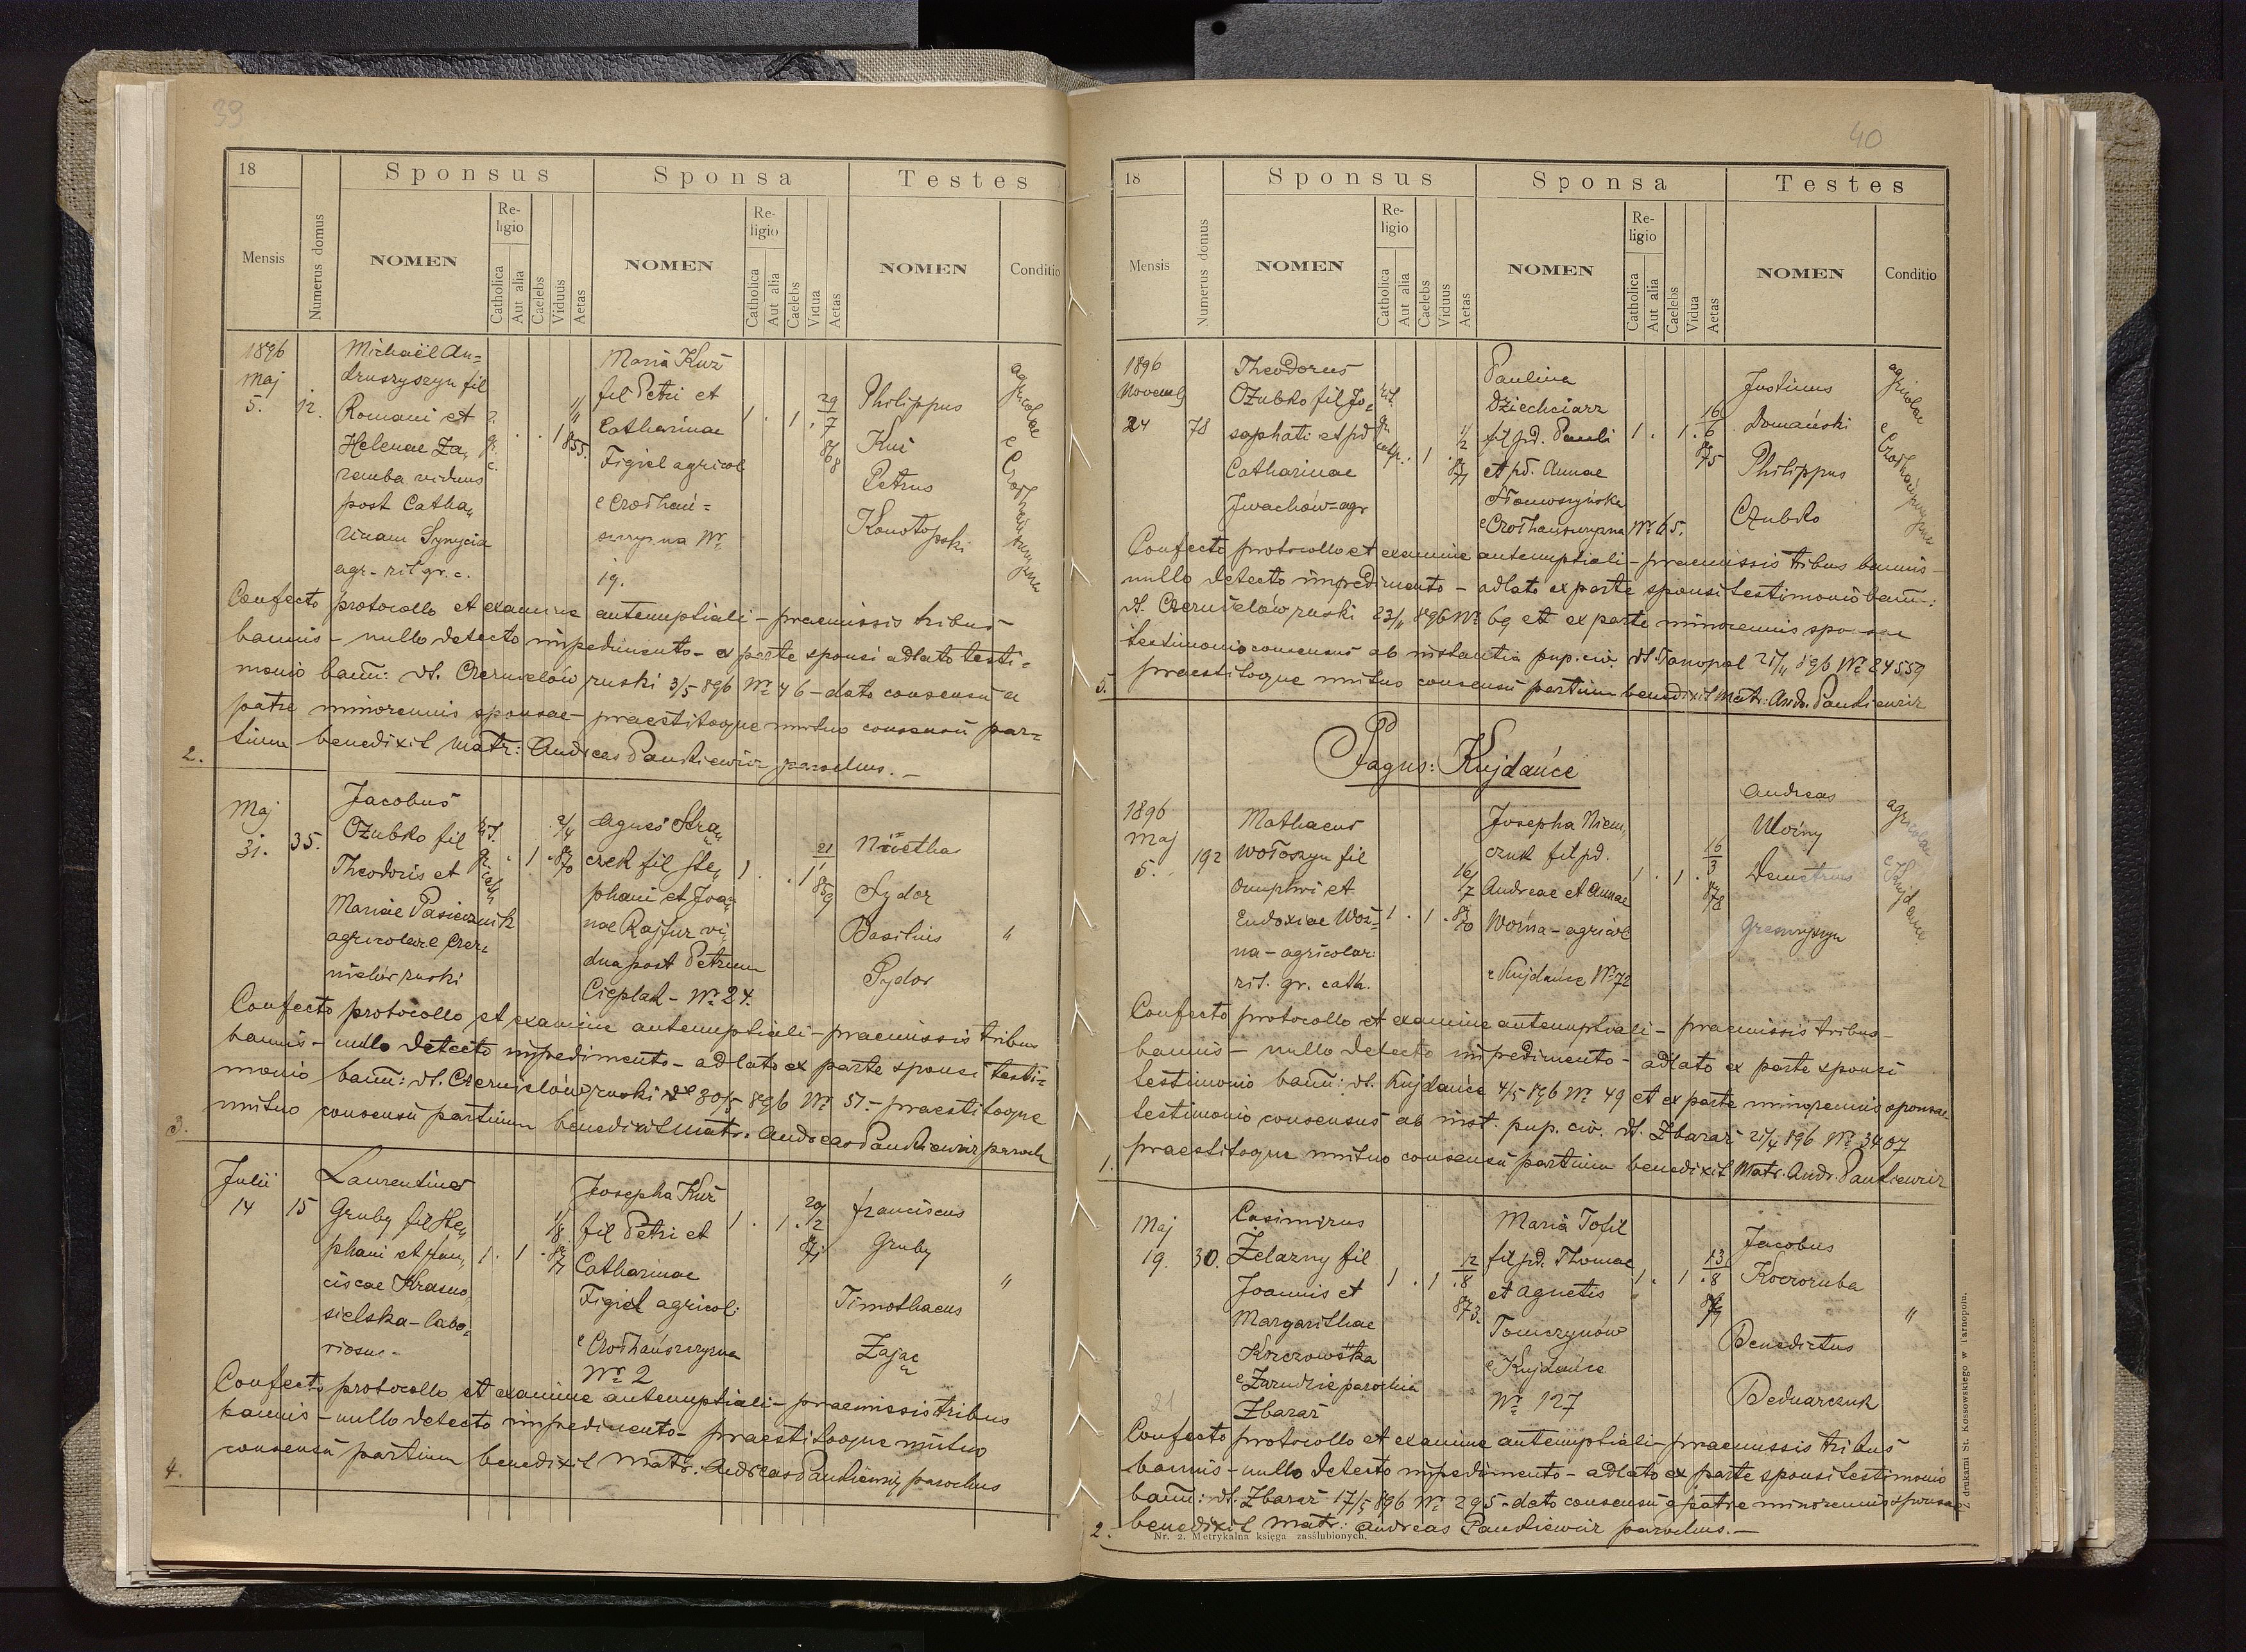 39
18
Sponsus
Sponsa
Testes
Mensis
Numerus domus
NOMEN
Religio
Catholica
Aut alia
Caelebs
Viduus
Aetas
NOMEN
Religio
Catholica
Aut alia
Caelebs
Vidua
Aetas
NOMEN
Conditio
1896
Maj
5.
12.
Michaël An=
druszyszyn fil
Romani et
Helenae Za„
remba viduus
post Catha„
rinam Synycia
agr. rit gr. c.
1
855.
Maria Kuź
fil Petri et
Catharinae
Figiel agricol
e Czołhań=
szczyzna Nr
19.
1 . 1 .
29
7
868
Philippus
Kuź
Petrus
Konotopski
agricolae
e Czołhańszczyzna
Confecto protocollo et examine antenuptiali – praemissis tribus
bannis – nullo detecto impedimento – ex parte sponsi adlato testi=
monio bann: dt. Czernielów ruski 3/5 896 Nr 46 – dato consensu a
patre minorennis sponsae – praestitoque mutuo consensu par=
tium benedixit Matr: Andreas Pankiewicz parochus. –
2.
Maj
31.
35.
Jacobus
Czubko fil
Theodoris et
Mariae Pasiecznik
agricolar e Czer„
nielów ruski
rit. gr. cath
. 1 .
21/4
870
Agnes Skrą„
czek fil Ste„
phani et Joa„
nae Rajfur vi„
dua post Petrum
Cieplak – Nr 24.
1 . . 1
21
1
859
Nicetha
Sydor
Basilius
Sydor
"
Confecto protocollo et examine antenuptiali – praemissis tribus
bannis – nullo detecto impedimento – adlato ex parte sponsi testi=
monio bann: dt. Czernielów ruski de 30/5 896 Nr 51. – praestitoque
mutuo consensu partium benedixit Matr. Andreas Pankiewicz paroch
3.
Julii
14
15
Laurentius
Gruby fil Ste„
phani et Fran„
ciscae Krasno„
sielska – labo„
riosus –
1 . 1 .
1/8
871
Josepha Kuź
fil Petri et
Catharinae
Figiel agricol:
e Czołhańszczyzna
Nr 2
1 . 1 .
29/12
871
Franciscus
Gruby
Timothaeus
Zając
"
Confecto protocollo et examine antenuptiali – praemissis tribus
bannis – nullo detecto impedimento – praestitoque mutuo
consensu partium benedixit Matr. Andreas Pankiewicz parochus
4.
40
18
Sponsus
Sponsa
Testes
Mensis
Numerus domus
NOMEN
Religio
Catholica
Aut alia
Caelebs
Viduus
Aetas
NOMEN
Religio
Catholica
Aut alia
Caelebs
Vidua
Aetas
NOMEN
Conditio
1896
Novemb
24
78
Theodorus
Czubko fil Jo„
saphati et pd
Catharinae
Iwachów – agr
rit. gr cath.
1 .
1/2
871
Paulina
Dziechciarz
fil pd. Pauli
et pd. Annae
Słomszyńska
e Czołhańszczyzna Nr 65.
1 . 1 .
16
6
875
Justinus
Domański
Philippus
Czubko
agricolae
e Czołhańszczyzna
Confecto protocollo et examine antenuptiali – praemissis tribus bannis –
nullo detecto impedimento – adlato ex parte sponsi testimonio bann:
dt. Czernielów ruski 23/11 896 Nr 69 et ex parte minorennis sponsae
testimonio consensus ab instantia pup. civ. dt. Tarnopol 21/11 896 Nr 24559
praestitoque mutuo consensu partium benedixit Matr: Andr. Pankiewicz
5.
Pagus: Kujdańce
1896
Maj
5.
192
Mathaeus
Wołoszyn fil
Onuphri et
Eudoxiae Woź=
na – agricolar:
rit. gr. cath.
1 . 1 .
16/7
870
Josepha Niem„
czuk fil pd.
Andreae et Annae
Woźna – agricol
e Kujdańce Nr 72
1 . 1 .
16
3
878
Andreas
Woźny
Demetrius
agricolae
e Kujdańce.
Confecto protocollo et examine antenuptiali – praemissis tribus –
bannis – nullo detecto impedimento – adlato ex parte sponsi
testimonio bann: dt. Kujdańce 4/5 896 Nr 49 et ex parte minorennis sponsae
testimonio consensus ab inst. pup. civ. dt. Zbaraż 21/4 896 Nr 3407
praestitoque mutuo consensu partium benedixit Matr. Andr. Pankiewicz
1.
Maj
19.
30.
Casimirus
Żelazny fil
Joannis et
Margarithae
Korczowska
e Zarudzie parochia
Zbaraż
1 . 1
12
8
873.
Maria Tofil
fil pd. Thomae
et Agnetis
Tomczynów
e Kujdańce
Nr 127
1 . 1
13
8
Jacobus
Koczoruba
Benedictus
Bednarczuk
"
21
Confecto protocollo et examine antenuptiali – praemissis tribus
bannis – nullo detecto impedimento – adlato ex parte sponsi testimonio
bann: dt. Zbaraż 17/5 896 Nr 295 – dato consensu a patre minorennis sponsae
benedixit Matr: Andreas Pankiewicz parochus. –
2.
Nr. 2. Metrykalna księga zaślubionych.
Z drukarni St. Kossowskiego w Tarnopolu.